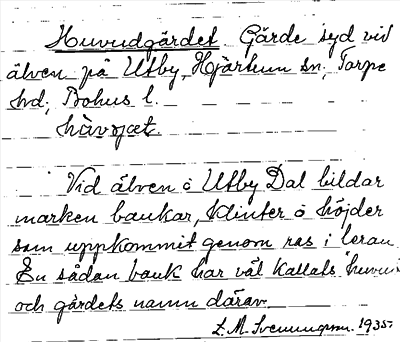 Huvudgärdet. Gärde syd vid
älven på Utby, Hjärtum sn, Torpe
hd, Bohus l.
hùvjæt.
Vid älven å Utby Dal bildar
marken bankar, klinter å höjder
som uppkommit genom ras i leran
En sådan bank har väl kallats huvu
och gärdets namn därav.
E. M. Svenungsson. 1935.